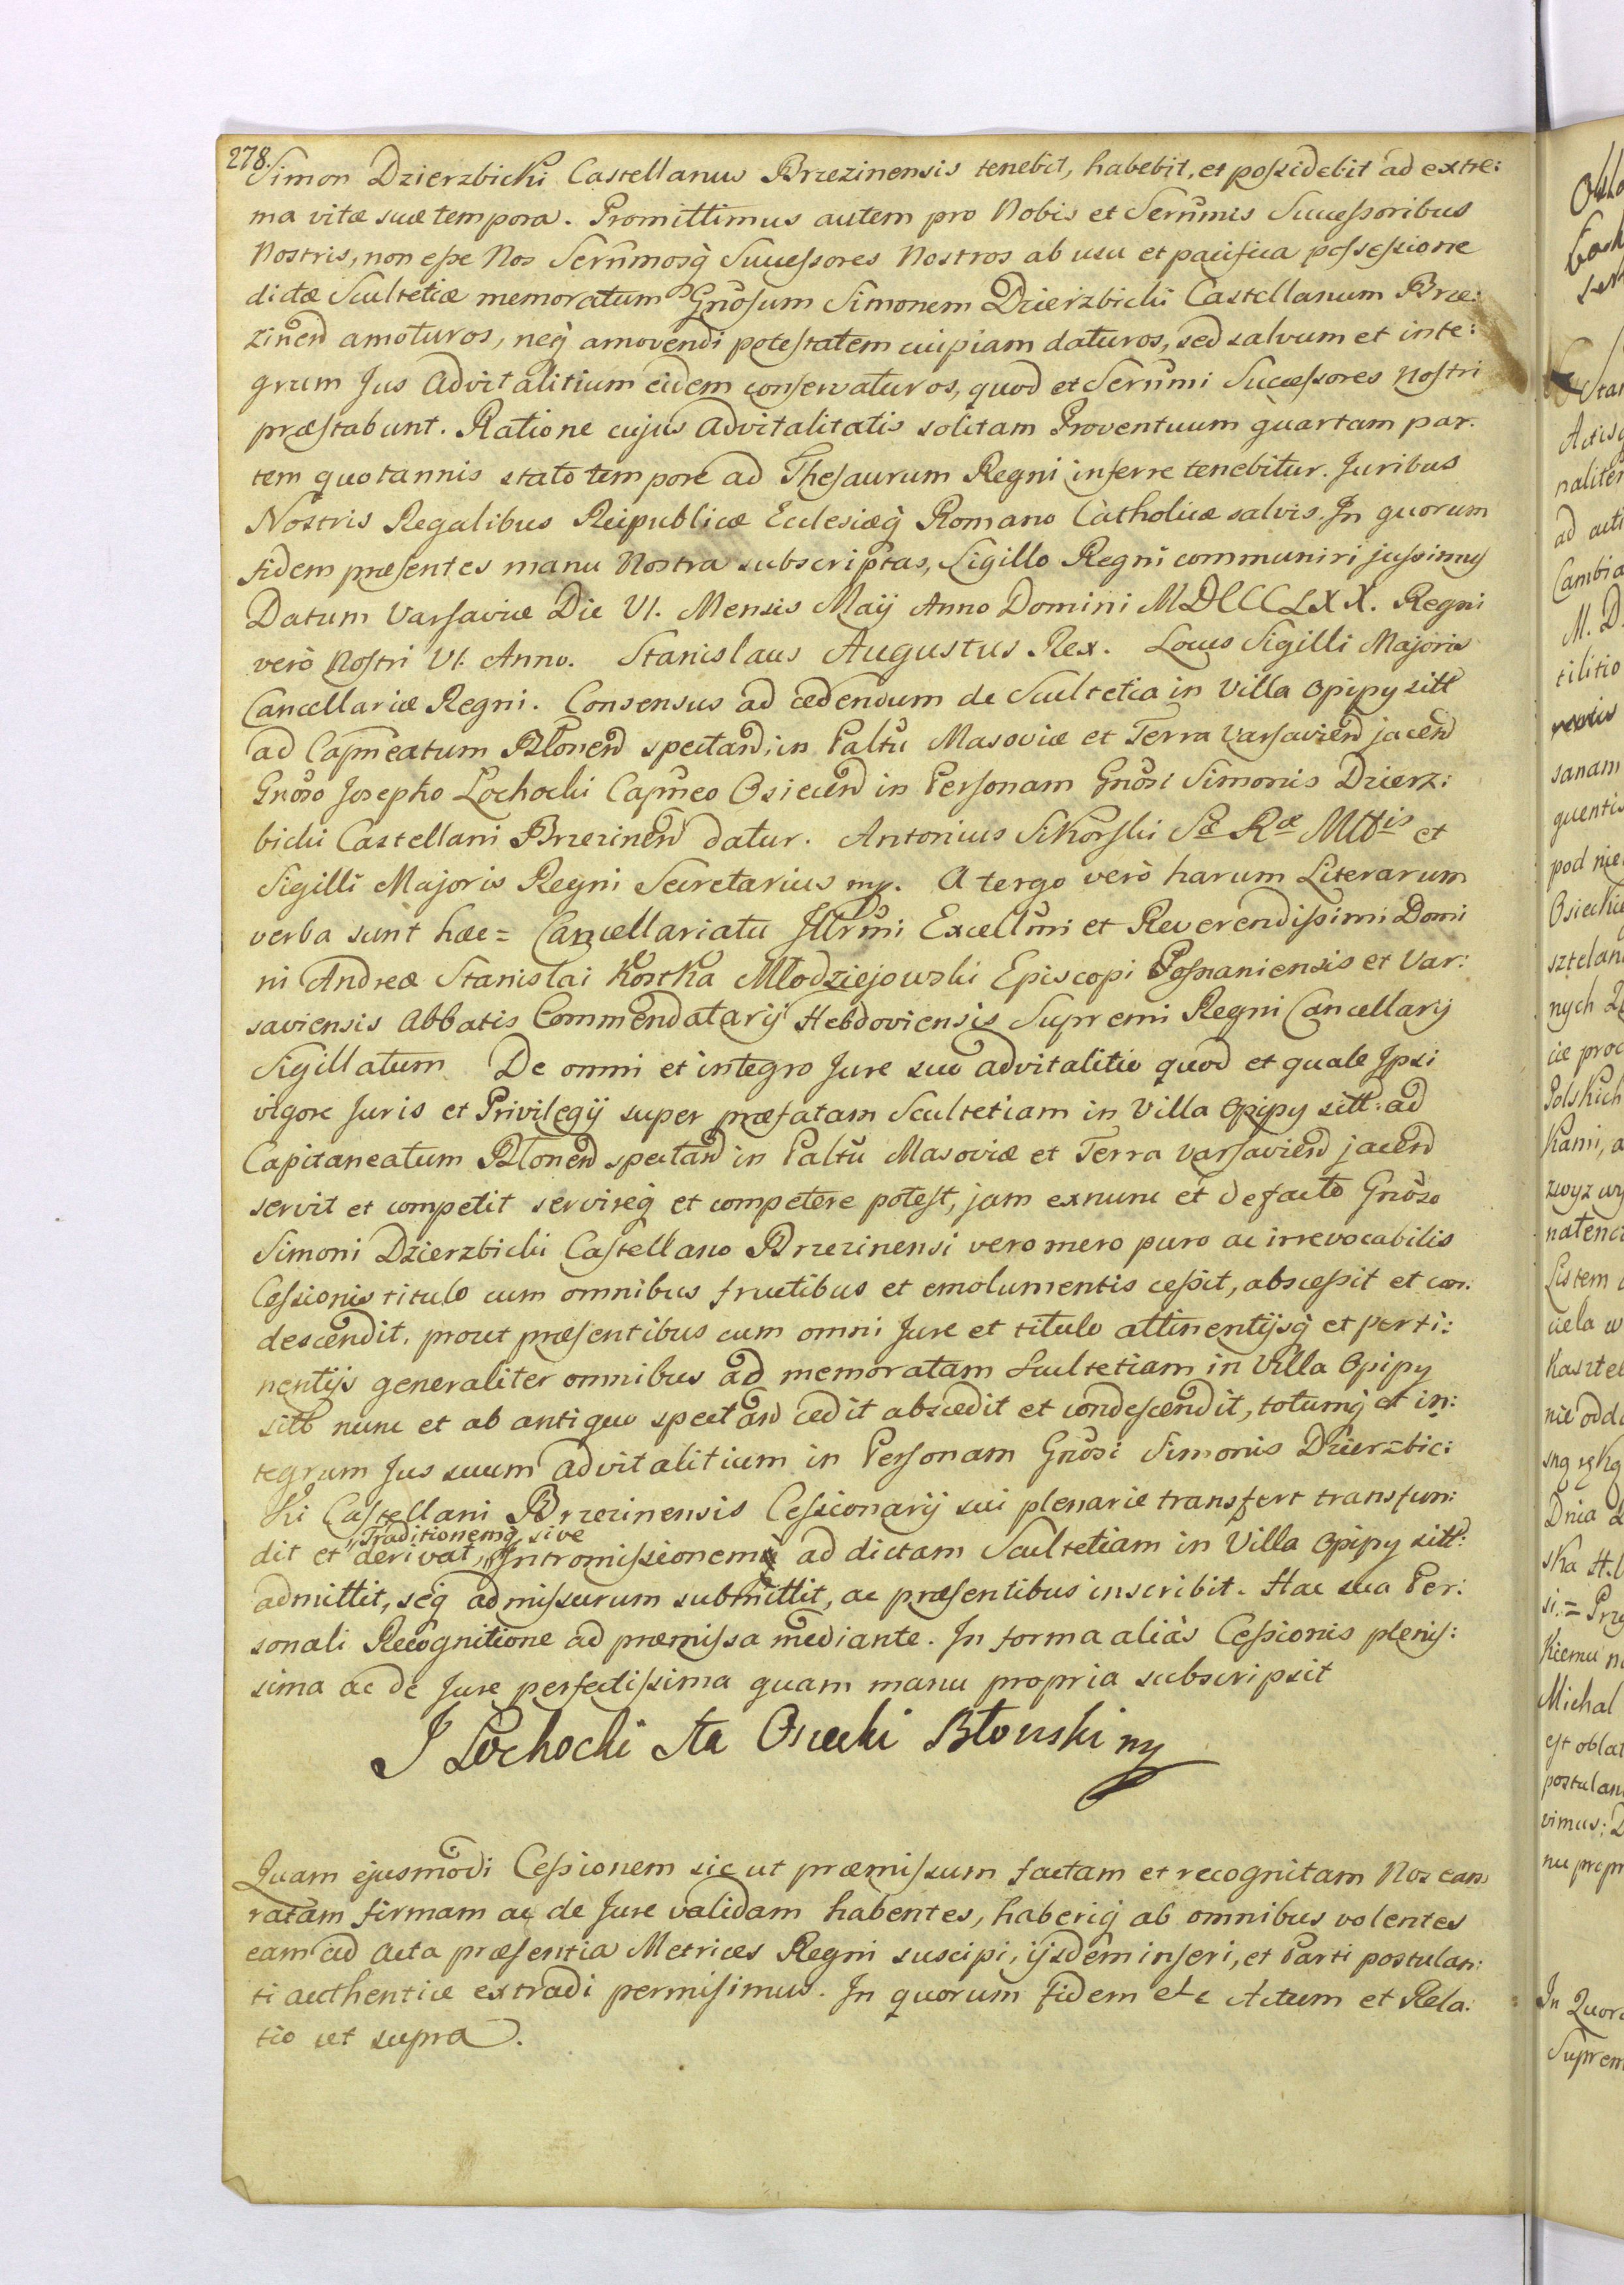 278.
Simon Dzierzbicki Castellanus Brzezinensis tenebit, habebit, et possidebit ad extre:
ma vitæ suæ tempora. Promittimus autem pro Nobis et Serñmis Successoribus
Nostris, non esse Nos Serñmosq̀ Successores Nostros ab usu et pacifica possessione
dictæ Scultetiæ memoratum Gnõsum Simonem Dzierzbicki Castellanum Brze:
zineñ amoturos, neq̀ amovendi potestatem cuipiam daturos, sed salvum et inte:
grum Jus advitalitium eidem conservaturos, quod et Serñmi Successores nostri
præstabunt. Ratione cujus advitalitatis solitam Proventuum quartam par.
tem quotannis stato tempore ad Thesaurum Regni inferre tenebitur. Juribus
Nostris Regalibus Reipublicæ Eclesiæq̀ Romano Catholicæ salvis. In quorum
fidem præsentes manu Nostra subscriptas, Sigillo Regni communiri jussimus
Datum Varsaviæ Die VI. Mensis Maij Anno Domini MDCCLXX. Regni
verò Nostri VI. Anno. Stanislaus Augustus Rex. Locus Sigilli Majoris
Cancellariæ Regni. Consensus ad cedendum de Scultetia in Villa Opipy sitt
ad Capñeatum Błoneñ spectañ, in Paltũ Masoviæ et Terra Varsavieñ jaceñ
Gnõso Josepho Łochocki Capñeo Osieceñ in Personam Gnõsi Simonis Dzierz:
bicki Castellani Brzezineñ datur. Antonius Sikorski Sæ Ræ Mttis et
Sigilli Majoris Regni Secretarius mp. A tergo verò harum Literarum
verba sunt hæc = Cancellariatu Illrm̃i Excellm̃i et Reverendissimi Domi
ni Andreæ Stanislai Kostka Młodziejowski Episcopi Posnaniensis et Var:
saviensis Abbatis Commendatarij Hebdoviensis Supremi Regni Cancellarij
Sigillatum De omni et integro Jure suo advitalitio quod et quale Ipsi
vigore Juris et Privilegij super præfatam Scultetiam in Villa Opipy sitt: ad
Capitaneatum Błoneñ spectañ in Paltũ Masoviæ et Terra Varsavieñ jaceñ
servit et competit servireq̀ et competere potest, jam exnunc et de facto Gnõso
Simoni Dzierzbicki Castellano Brzezinensi vero mero puro ac irrevocabilis
Cessionis titulo cum omnibus fructibus et emolumentis cessit, abscessit et con:
descendit. prout præsentibus cum omni Jure et titulo attinentijsq̀ et perti:
nentijs generaliter omnibus ad memoratam Scultetiam in Villa Opipy
sitt nunc et ab antiquo spectañ cedit abscedit et condescendit, totumq̀ et in:
tegrum Jus suum advitalitium in Personam Gnõsi Simonis Dzierzbic:
ki Castellani Brzezinensis Cessionarij sui plenarie transfert transfun:
Traditionemq̀ sive
dit et derivat, Intromissionem ad dictam Scultetiam in Villa Opipy sitt:
admittit, seq̀ admissurum submittit, ac præsentibus inscribit. Hac sua Per:
sonali Recognitione ad præmissa mediante. In forma aliàs Cessionis plenis:
sima ac de Jure perfectissima quam manu propria subscripsit
J Łochocki Sta Osiecki Błonski mp
Quam ejusmodi Cessionem sic ut præmissum factam et recognitam Nos eam
ratam firmam ac de Jure validam habentes, haberiq̀ ab omnibus volentes
eam ad Acta præsentia Metrices Regni suscipi, ijsdem inseri, et Parti postulan:
ti authentice extradi permisimus. In quorum fidem etc Actum et Rela:
tio ut supra.